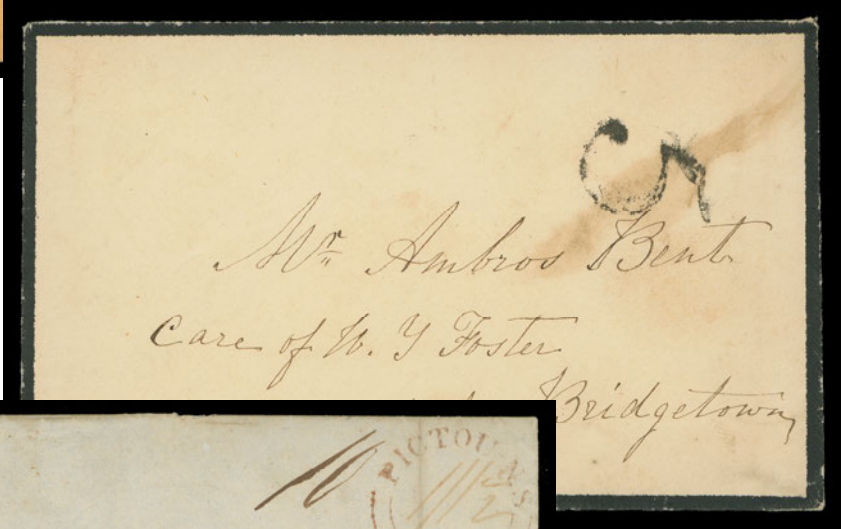 5
Mr Ambros Bent
Care of W. Y Foster
Bridgetown
10 PICTOU N.S